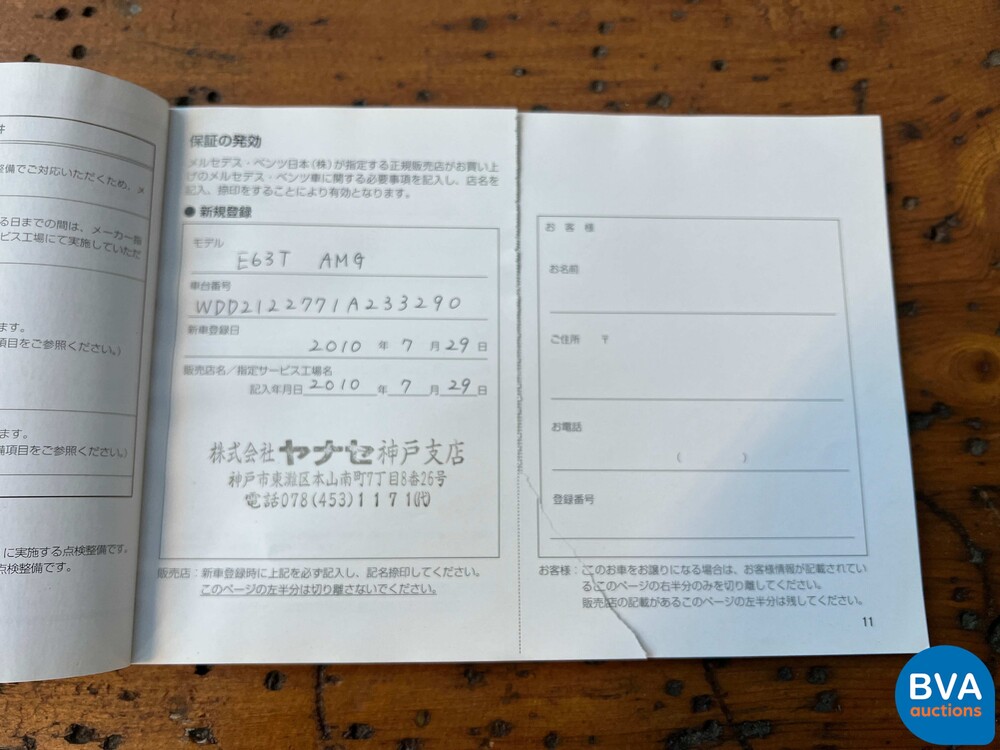 件
整備でご対応いただくため、メ
る日までの間は、メーカー指
ービス工場にて実施していただ
ます。
項目をご参照ください。)
ます。
備項目をご参照ください。)
に実施する点検整備です。
点検整備です。
保証の発効
メルセデス・ベンツ日本(株)が指定する正規販売店がお買い上
げのメルセデス・ベンツ車に関する必要事項を記入し、店名を
記入、捺印をすることにより有効となります。
● 新規登録
モデル
E63T AMG
車台番号
WDD2122771A233290
新車登録日
2010 年 7 月 29 日
販売店名/指定サービス工場名
記入年月日 2010 年 7 月 29 日
株式会社ヤナセ神戸支店
神戸市東灘区本山南町7丁目8番26号
電話078(453)1171㈹
販売店:新車登録時に上記を必ず記入し、記名捺印してください。
このページの左半分は切り離さないでください。
お客様
お名前
ご住所 〒
お電話
( )
登録番号
お客様:このお車をお譲りになる場合は、お客様情報が記載されてい
るこのページの右半分のみを切り離してください。
販売店の記載があるこのページの左半分は残してください。
11
BVA
auctions